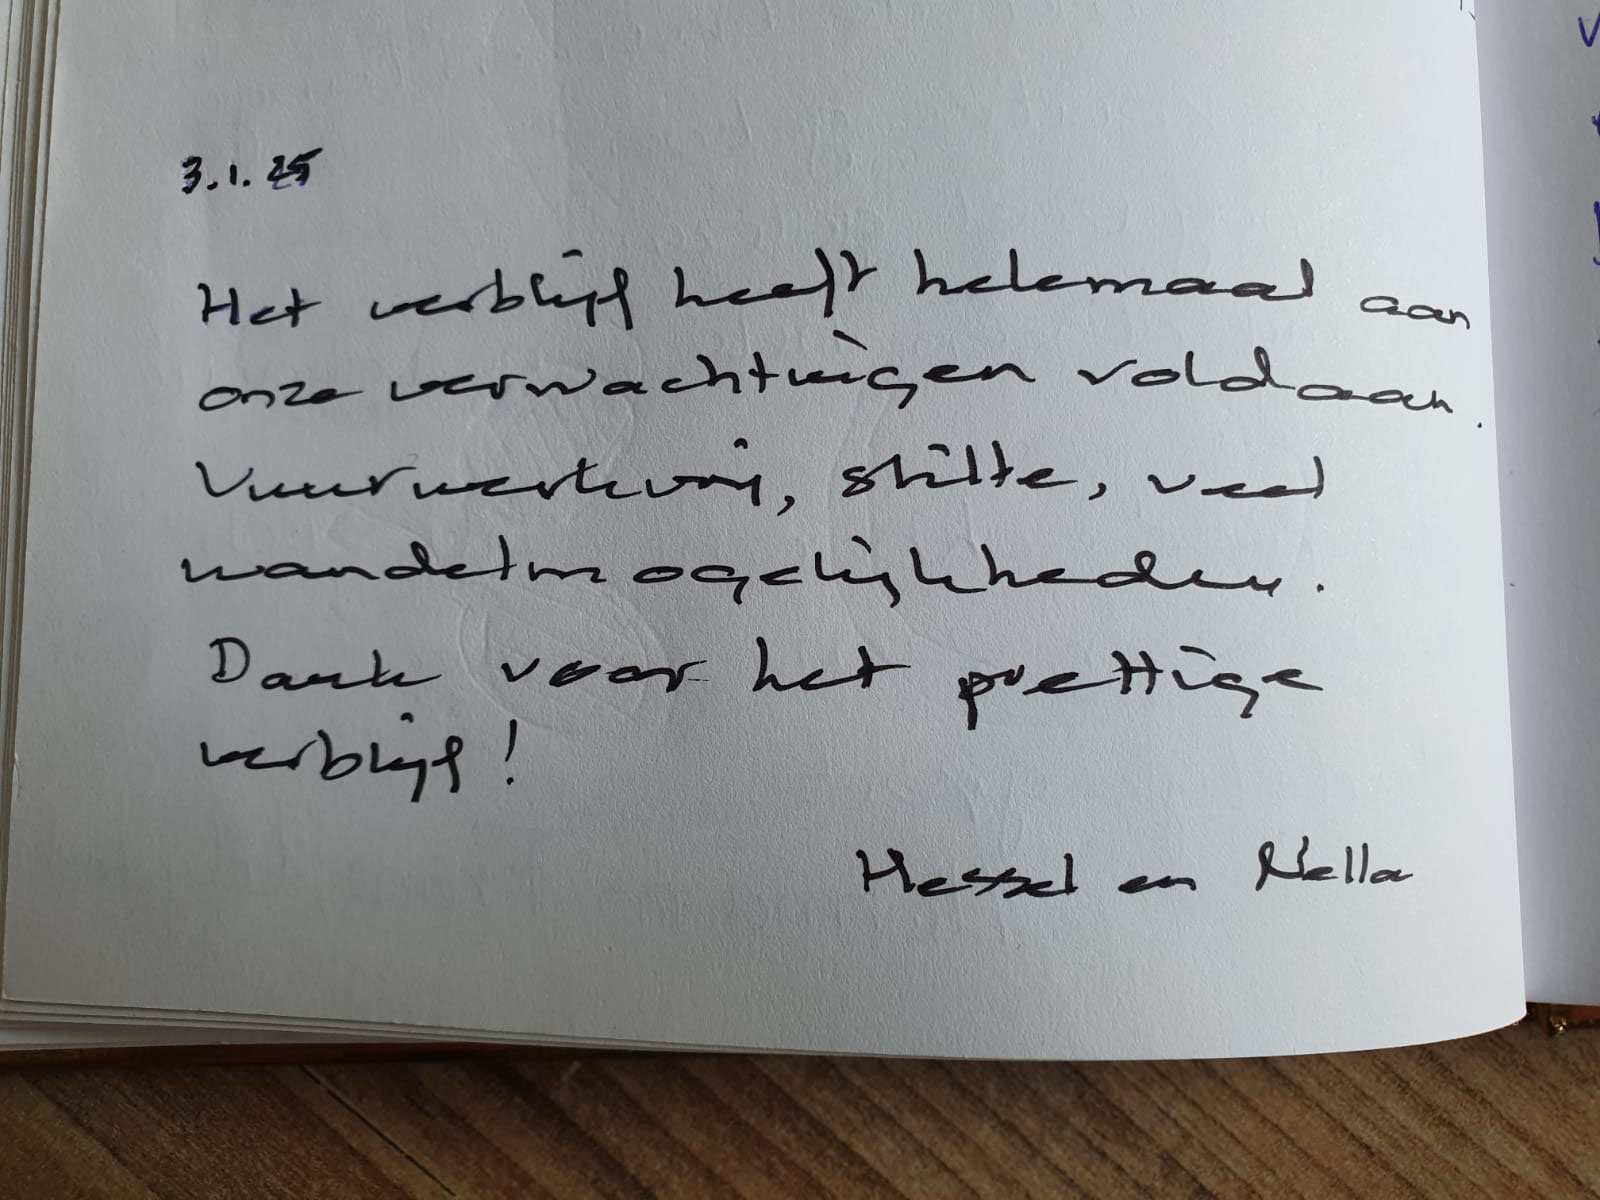 3.1.25
Het verblijf heeft helemaal aan
onze verwachtingen voldaan.
Vuurwerkvrij, stilte, veel
wandelmogelijkheden.
Dank voor het prettige
verblijf!
Hessel en Nella